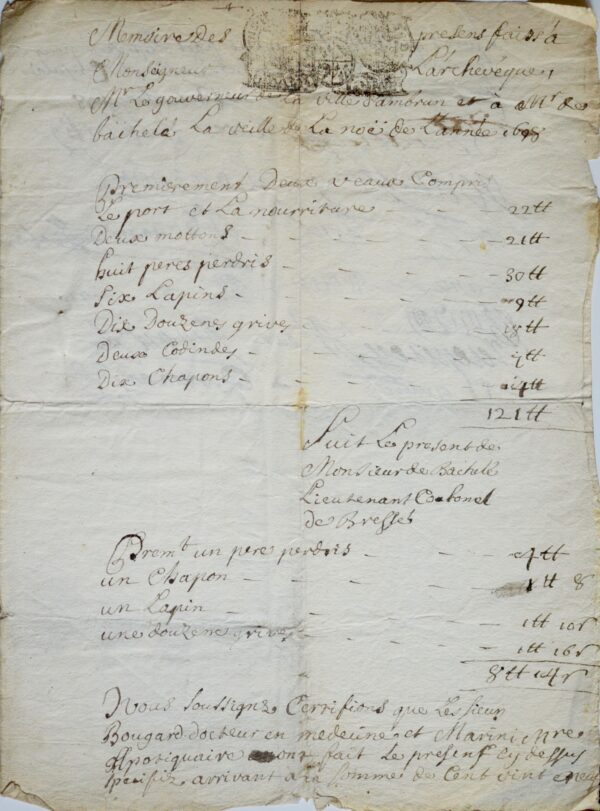 Memoire des presens faiss à
Monseigneur L'archeveque,
Mr Le gouverneur de la ville d'ambrun et à Mr de
bachelé La veille de La noë de L'année 1698
Premierement Deux veaux Compris
Le port et La nourriture 22tt
Deux mottons 21tt
huit peres perdris 30tt
Six Lapins 9tt
Dix Douzenes grives 18tt
Deux Codindes 7tt
Dix Chapons 14tt
121tt
Suit Le present de
Monsieur de Bachelle
Lieutenant Colonel
de Bressé
Premt un pere perdris 4tt
un Chapon 1tt 8
un Lapin 1tt 10s
une douzene grives 1tt 16s
8tt 14s
Nous Soussignez Certifions que Les sieur
Bougard docteur en medecine et Marini Mre
appotiquaire ont fait Le present Cy dessus
specifiz arrivant a la somme de Cent vint et neuf